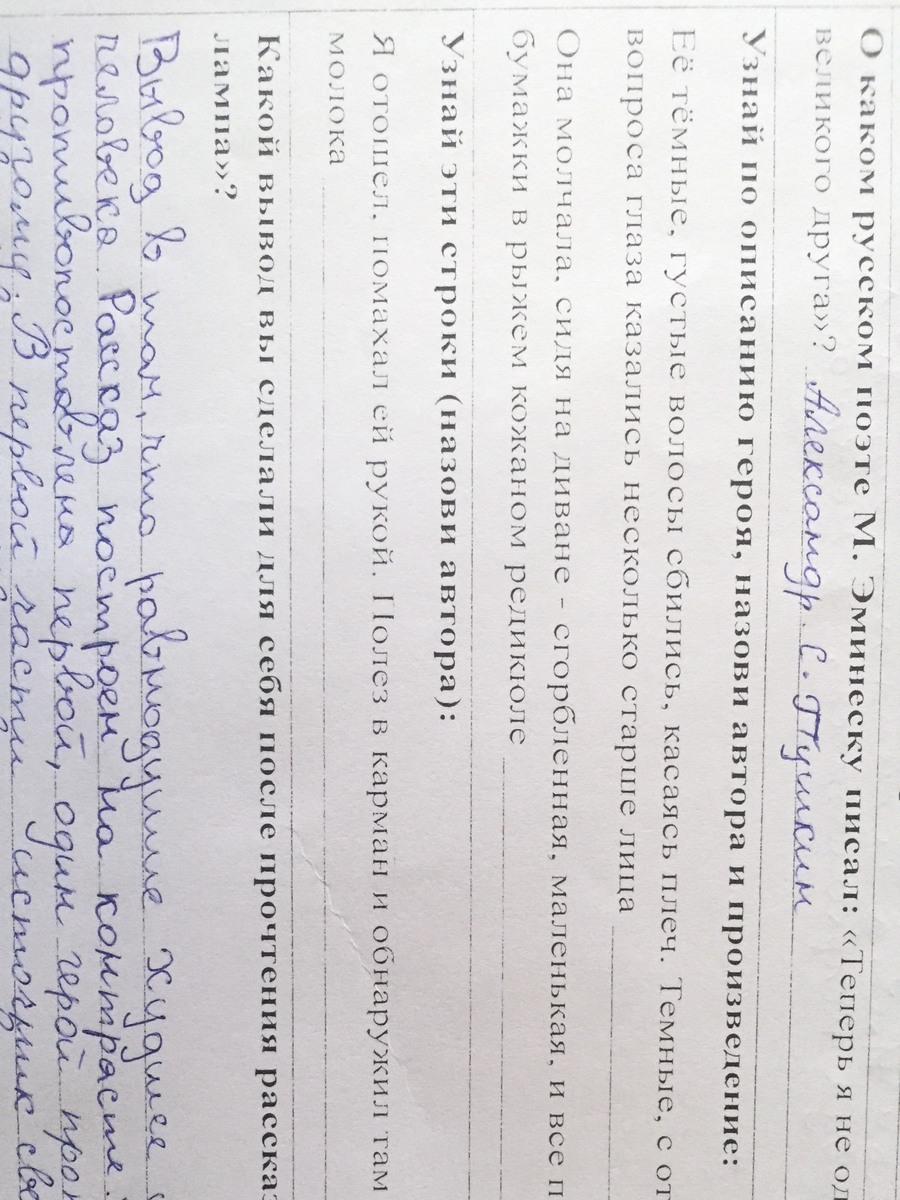 О каком русском поэте М. Эминеску писал: «Теперь я не од
великого друга»? Александр. С. Пушкин
Узнай по описанию героя, назови автора и произведение:
Её тёмные, густые волосы сбились, касаясь плеч. Темные, с от
вопроса глаза казались несколько старше лица
Она молчала, сидя на диване - сгорбленная, маленькая, и все п
бумажки в рыжем кожаном редикюле
Узнай эти строки (назови автора):
Я отошел, помахал ей рукой. Полез в карман и обнаружил там
молока
Какой вывод вы сделали для себя после прочтения расска
лампа»?
Вывод в том, что равнодушие худшее
человека. Рассказ построен на контрасте.
противопоставлена первой, один герой
другому. В первой части Источник све